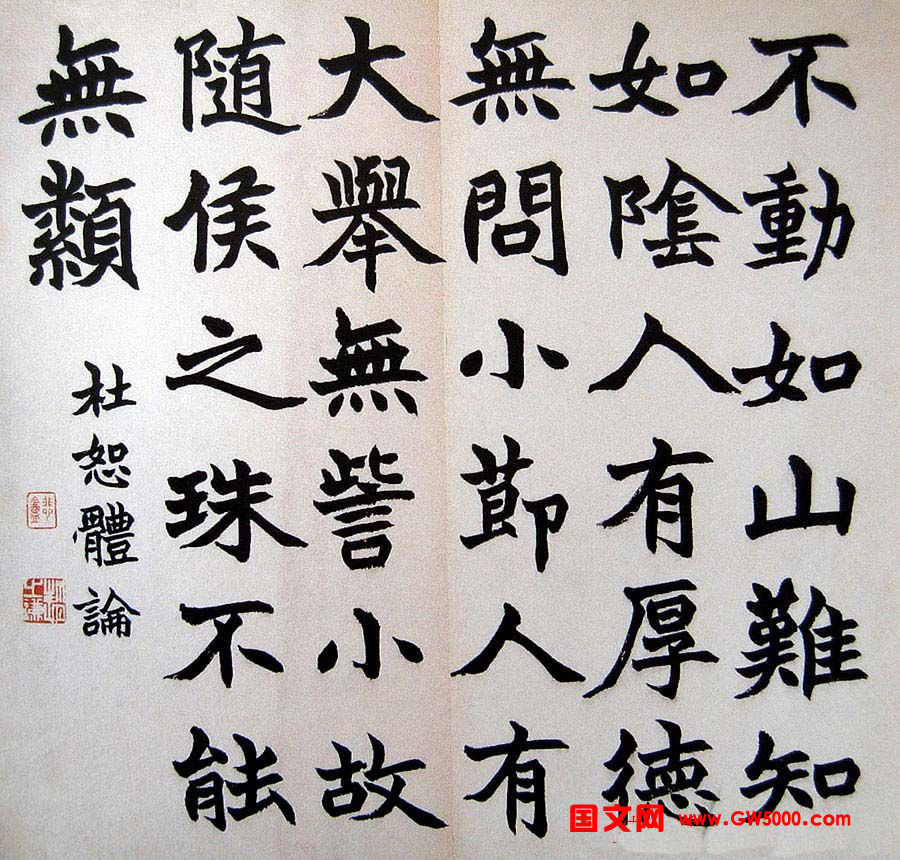 不動如山難知
如陰人有厚德
無問小節人有
大舉無訾小故
隨侯之珠不能
無纇
杜恕體論
国文网 www.GW5000.com